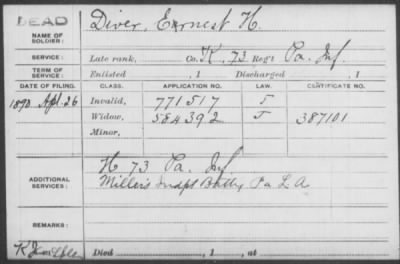 DEAD
NAME OF SOLDIER: Diver, Earnest H.
SERVICE: Late rank, Co. K, 73 Reg't Pa. Inf.
TERM OF SERVICE: Enlisted , 1 Discharged , 1
DATE OF FILING. CLASS. APPLICATION NO. LAW. CERTIFICATE NO.
1890 Apl. 26 Invalid, 771517
Widow, 584392 387101
Minor,
ADDITIONAL SERVICES: H 73 Pa. Inf.
Miller's Indpt Batty Pa L A
REMARKS:
Died , 1 , at